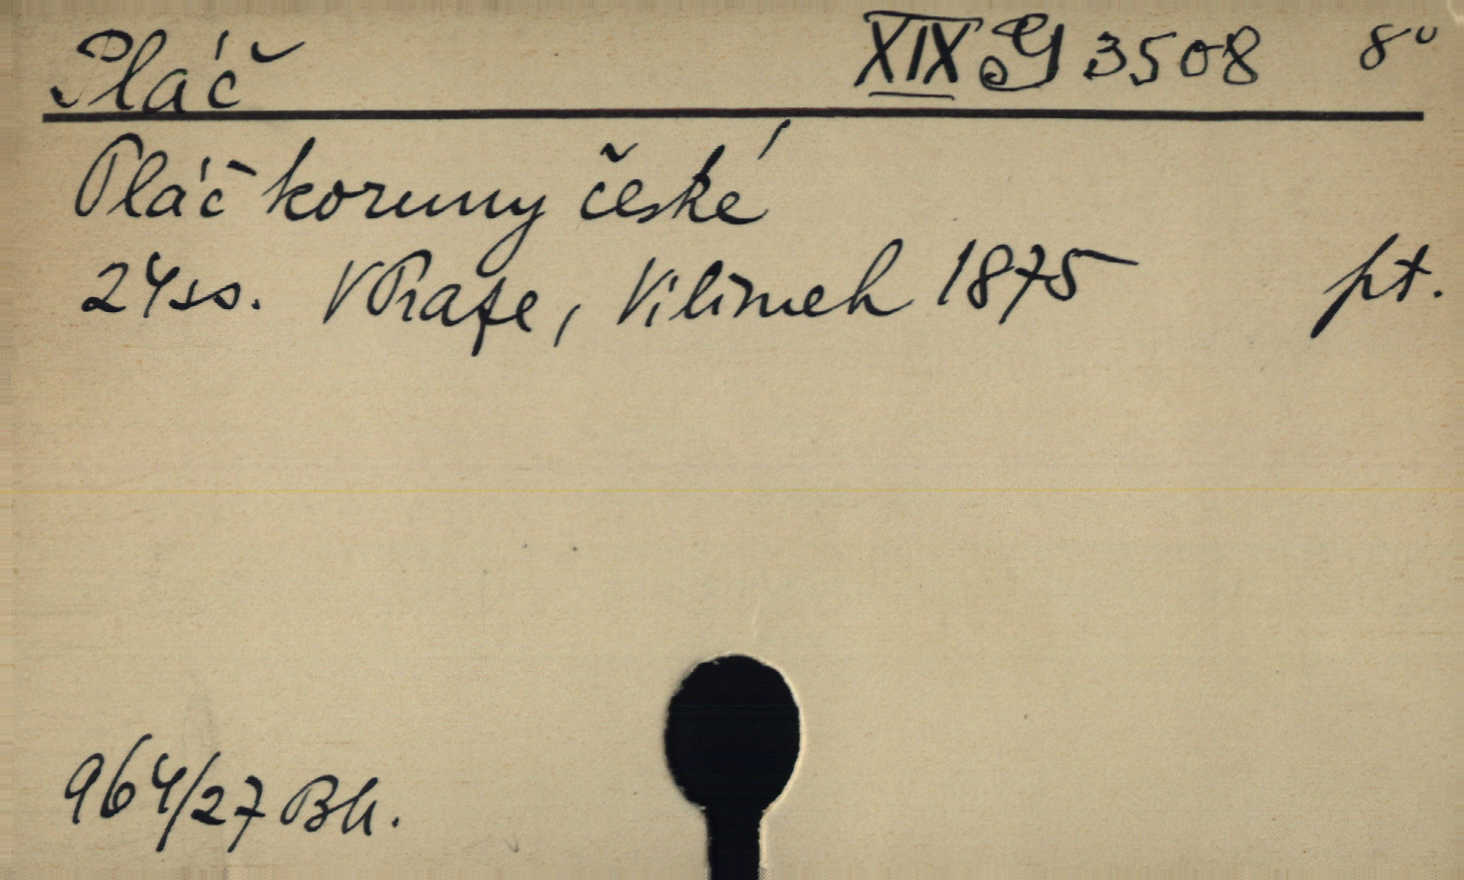 Pláč XIX G 3508 8°
Pláč koruny české
24 ss. V Praze, Vilímek 1875 pt.
964/27 Bh.